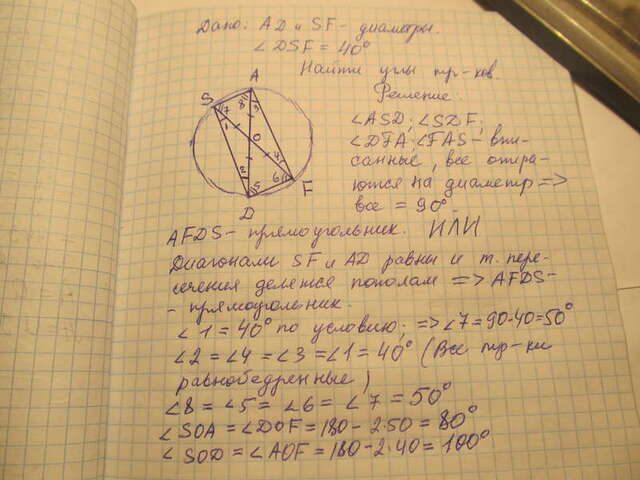 Дано: AD и SF - диаметры.
∠DSF = 40°
Найти углы тр-ков.
Решение:
∠ASD; ∠SDF;
∠DFA; ∠FAS - впи-
санные, все опира-
ются на диаметр =>
все = 90°
A
S
7
8
3
1
O
4
2
5
6
F
D
AFDS - прямоугольник. ИЛИ
Диагонали SF и AD равны и т. пере-
сечения делятся пополам => AFDS-
- прямоугольник.
∠1 = 40° по условию; => ∠7 = 90-40=50°
∠2 = ∠4 = ∠3 = ∠1 = 40° (Все тр-ки
равнобедренные)
∠8 = ∠5 = ∠6 = ∠7 = 50°
∠SOA = ∠DOF = 180 - 2·50 = 80°
∠SOD = ∠AOF = 180 - 2·40 = 100°